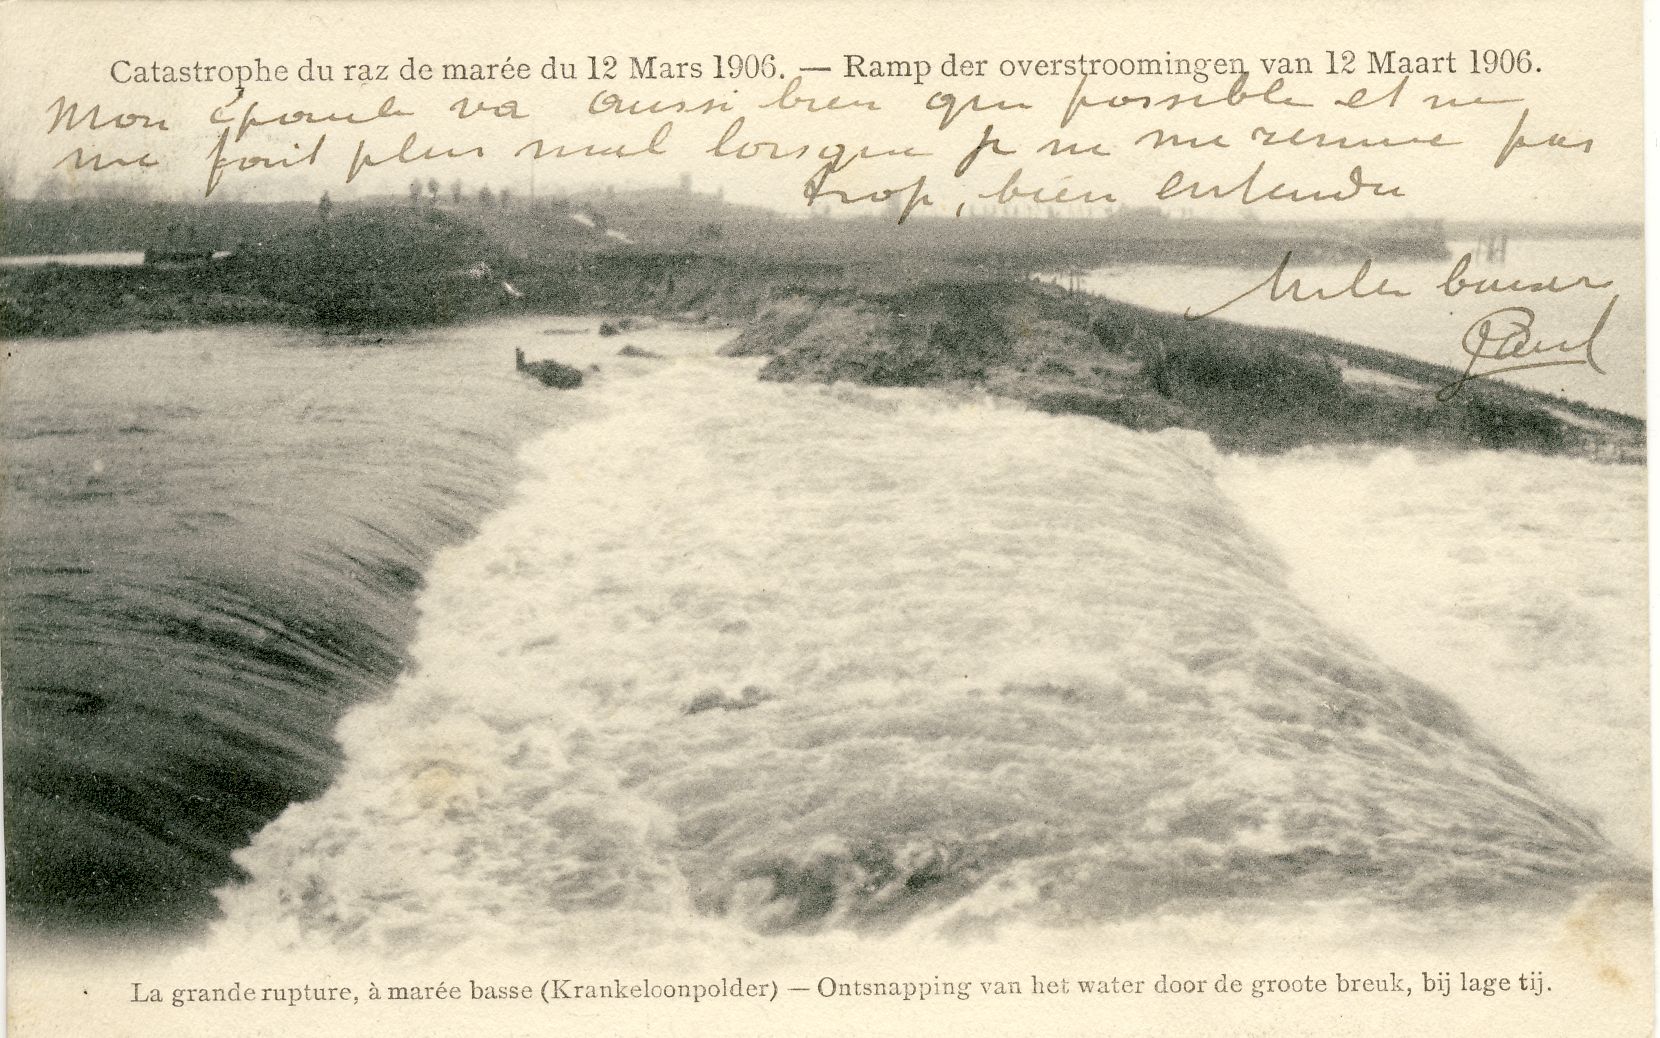 Catastrophe du raz de marée du 12 Mars 1906. — Ramp der overstroomingen van 12 Maart 1906.
Mon épaule va aussi bien que possible et ne
me fait plus mal lorsque je ne me remue pas
trop, bien entendu
Mille baisers
Paul
La grande rupture, à marée basse (Krankeloonpolder) — Ontsnapping van het water door de groote breuk, bij lage tij.